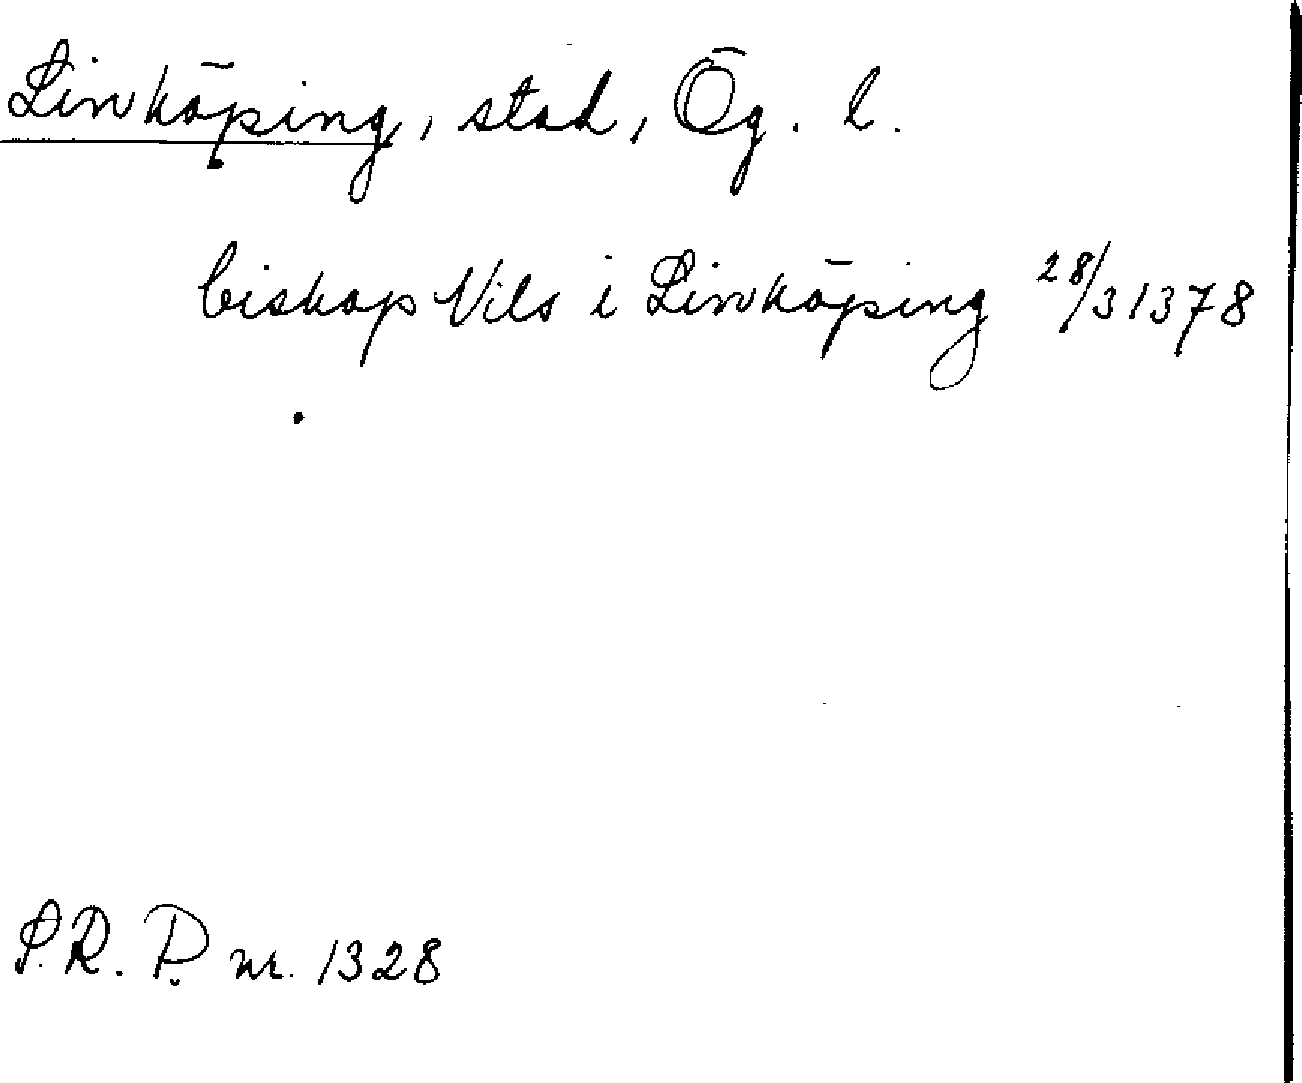 Linköping, stad, Ög. l.
biskop Nils i Linköping 28/3 1378
S.R.P. nr. 1328